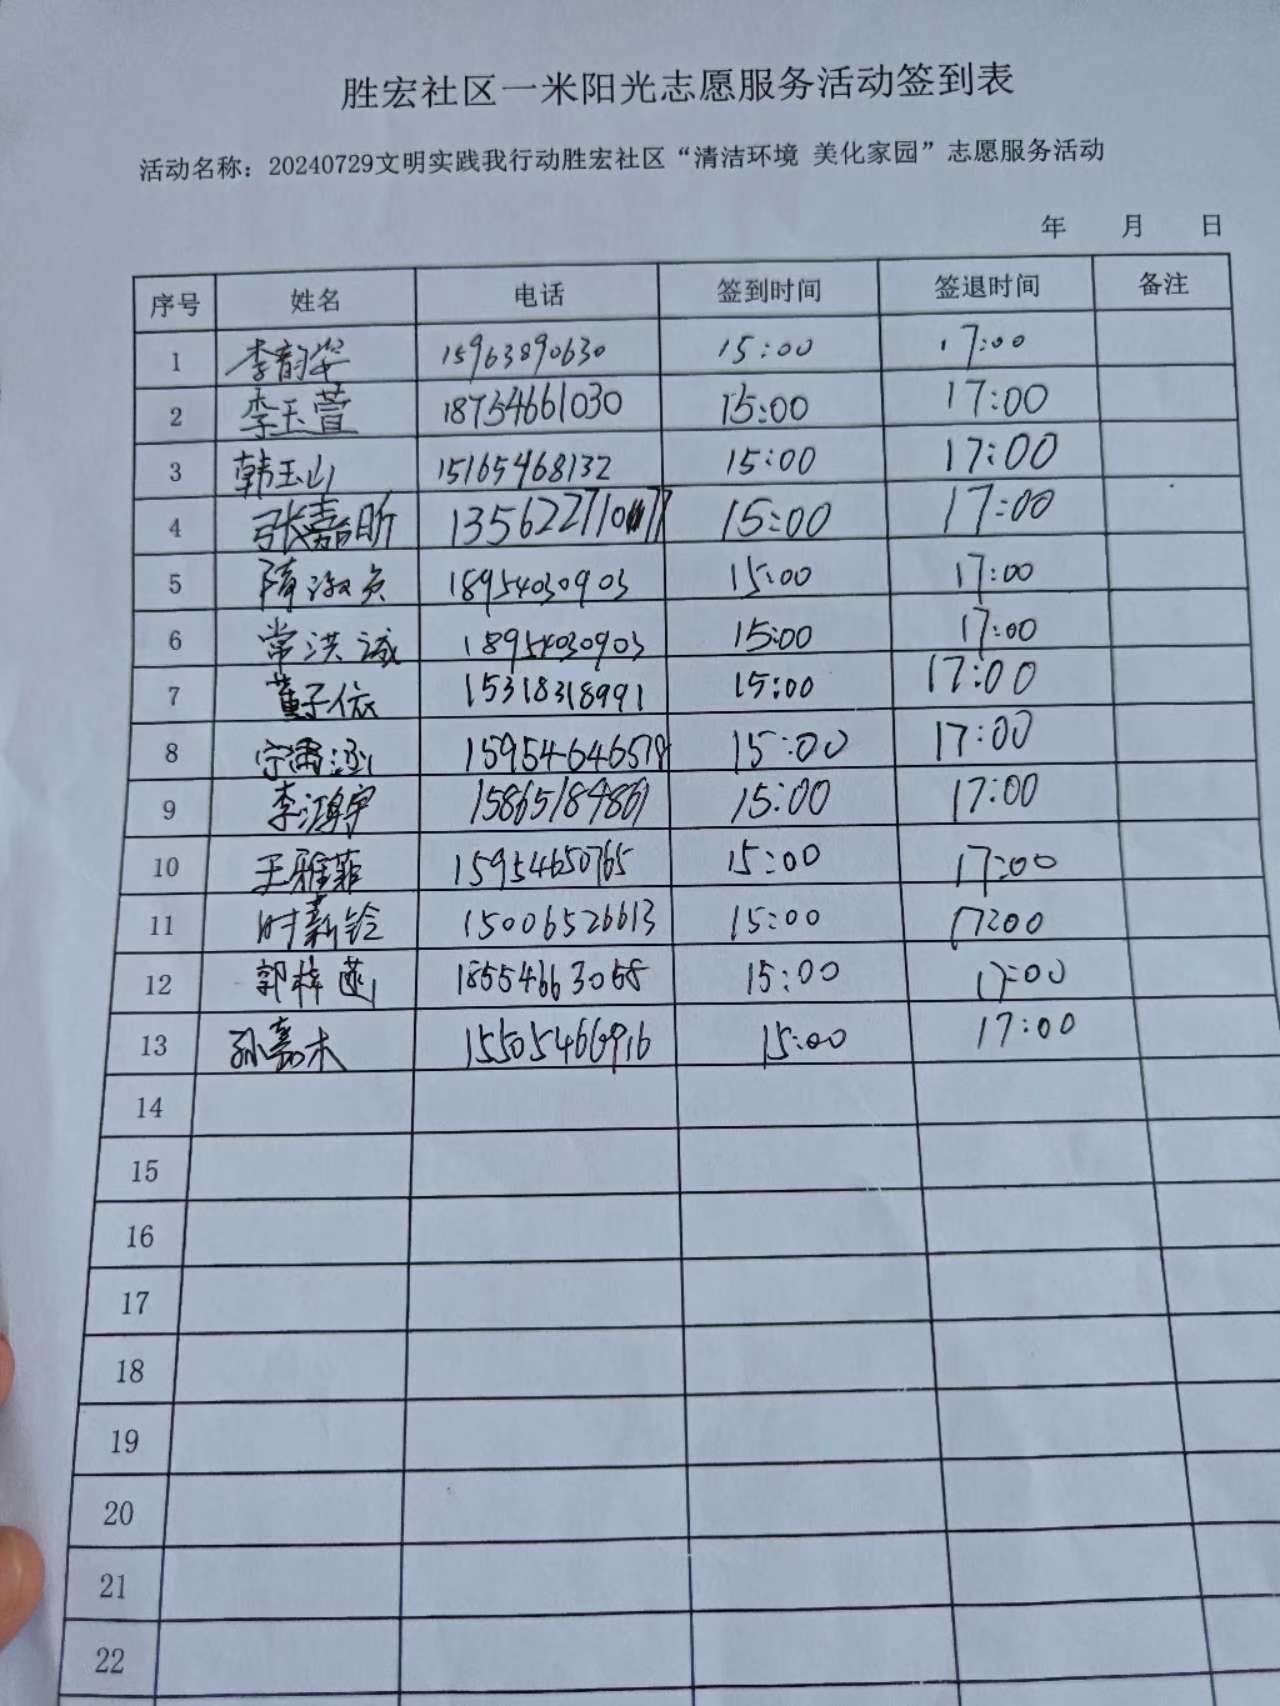 胜宏社区一米阳光志愿服务活动签到表
活动名称：20240729文明实践我行动胜宏社区“清洁环境 美化家园”志愿服务活动
年 月 日
序号 姓名 电话 签到时间 签退时间 备注
1 李韵 15963890630 15:00 17:00
2 李玉萱 18754661030 15:00 17:00
3 韩玉山 15165468132 15:00 17:00
4 张嘉昕 15:00 17:00
5 隋淑贞 18954030903 15:00 17:00
6 常洪诚 18954030903 15:00 17:00
7 董子依 15318318991 15:00 17:00
8 宁 涵 15:00 17:00
9 李 宇 15865184861 15:00 17:00
10 王雅菲 15954650765 15:00 17:00
11 时薪铃 15006526613 15:00 17:00
12 郭梓 18554663058 15:00 17:00
13 孙嘉木 15505466916 15:00 17:00
14
15
16
17
18
19
20
21
22